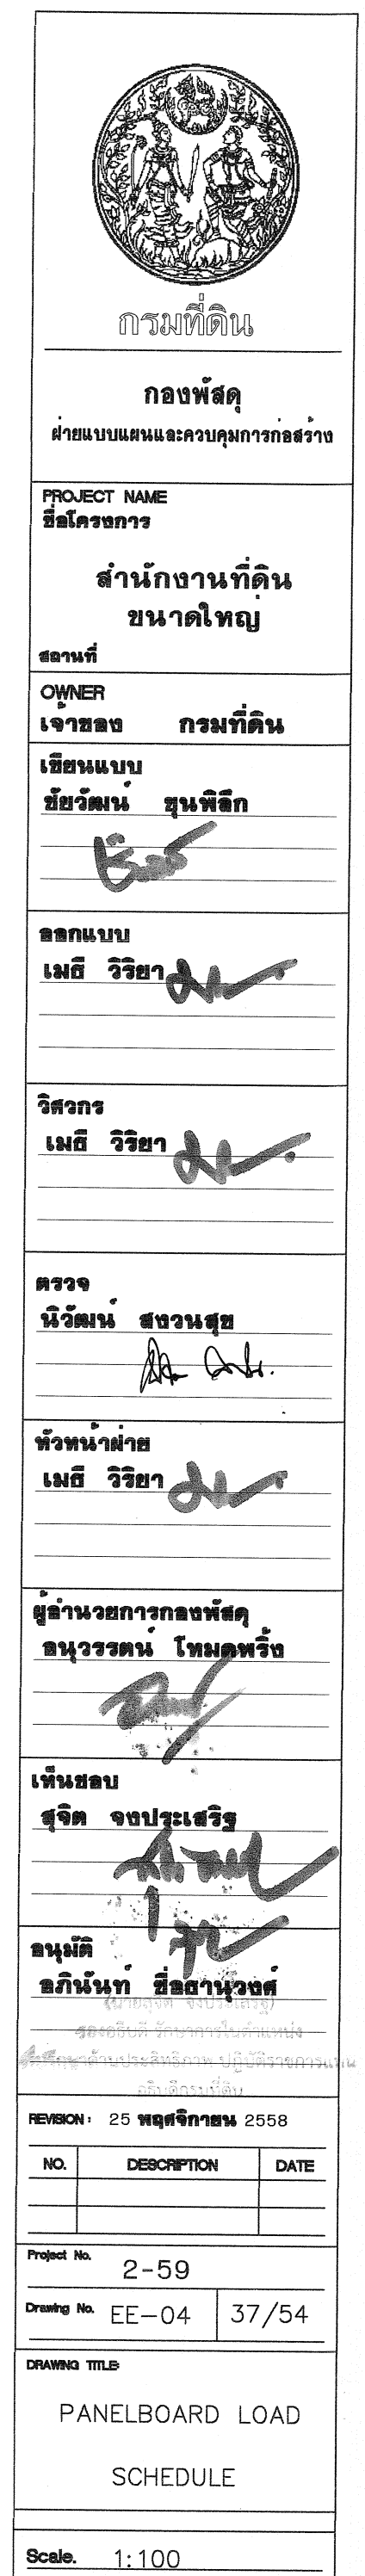 กรมที่ดิน
กองพัสดุ
ฝ่ายแบบแผนและควบคุมการก่อสร้าง
PROJECT NAME
ชื่อโครงการ
สำนักงานที่ดิน
ขนาดใหญ่
สถานที่
OWNER
เจ้าของ กรมที่ดิน
เขียนแบบ
ชัยวัฒน์ ขุนพิลึก
ออกแบบ
เมธี วิริยา
วิศวกร
เมธี วิริยา
ตรวจ
นิวัฒน์ สงวนสุข
หัวหน้าฝ่าย
เมธี วิริยา
ผู้อำนวยการกองพัสดุ
อนุวรรตน์ โหมดพริ้ง
เห็นชอบ
สุจิต จงประเสริฐ
อนุมัติ
อภินันท์ ซื่อธานุวงศ์
(นายสุจิต จงประเสริฐ)
รองอธิบดี รักษาการในตำแหน่ง
ที่ปรึกษาด้านประสิทธิภาพ ปฏิบัติราชการแทน
อธิบดีกรมที่ดิน
REVISION : 25 พฤศจิกายน 2558
NO. DESCRIPTION DATE
Project No.
2-59
Drawing No. EE-04 37/54
DRAWING TITLE:
PANELBOARD LOAD
SCHEDULE
Scale. 1:100